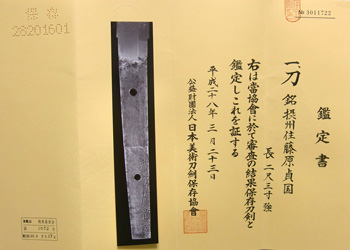 保存
28201601
No 3011722
鑑定書
一、刀 銘 摂州住藤原貞国
長 二尺三寸強
右は當協會に於て審査の結果保存刀剣と
鑑定しこれを証する
平成二十八年 三月 二十三日
公益財團法人 日本美術刀剣保存協會